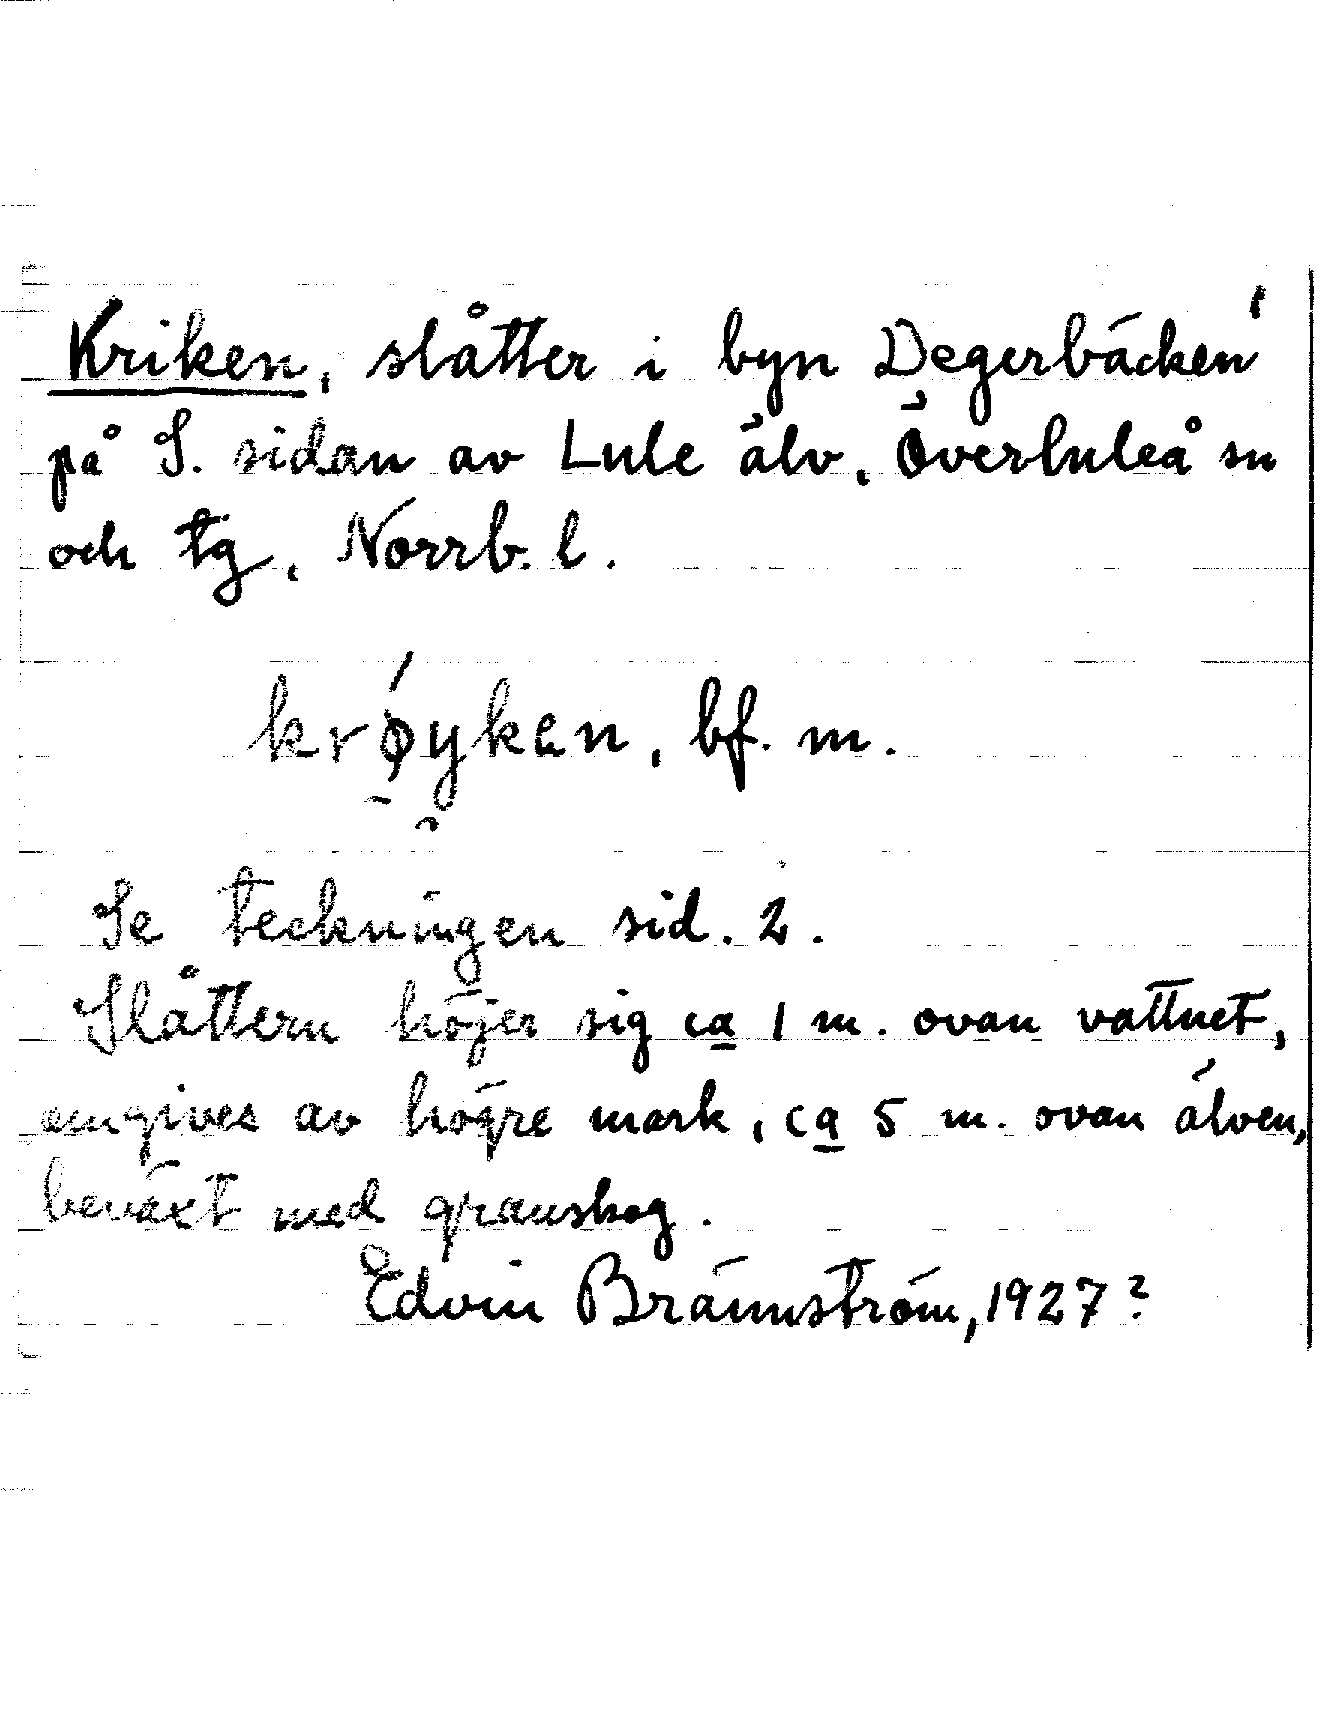 Kriken, slåtter i byn Degerbäcken
på S. sidan av Lule älv, Överluleå sn
och tg, Norrb. l.
krøyken, bf. m.
Se teckningen sid. 2.
Slåttern höjer sig ca 1 m. ovan vattnet,
omgives av högre mark, ca 5 m. ovan älven,
beväxt med granskog.
Edvin Brännström, 1927?